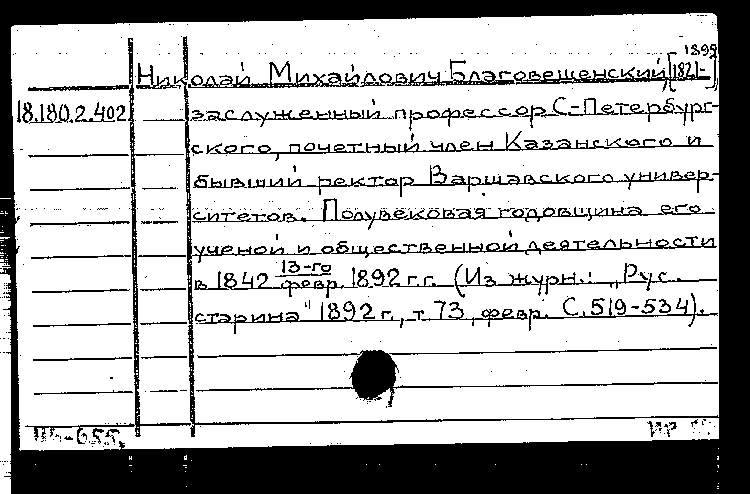 1899
Николай Михайлович Благовещенский, [1821-]
18.180.2.402 заслуженный профессор С-Петербург-
ского, почетный член Казанского и
бывший ректор Варшавского универ-
ситетов. Полувековая годовщина его
ученой и общественной деятельности
в 1842 13-го февр. 1892 г.г. (Из журн.: „Рус.
старина" 1892 г., т. 73, февр. С. 519-534).